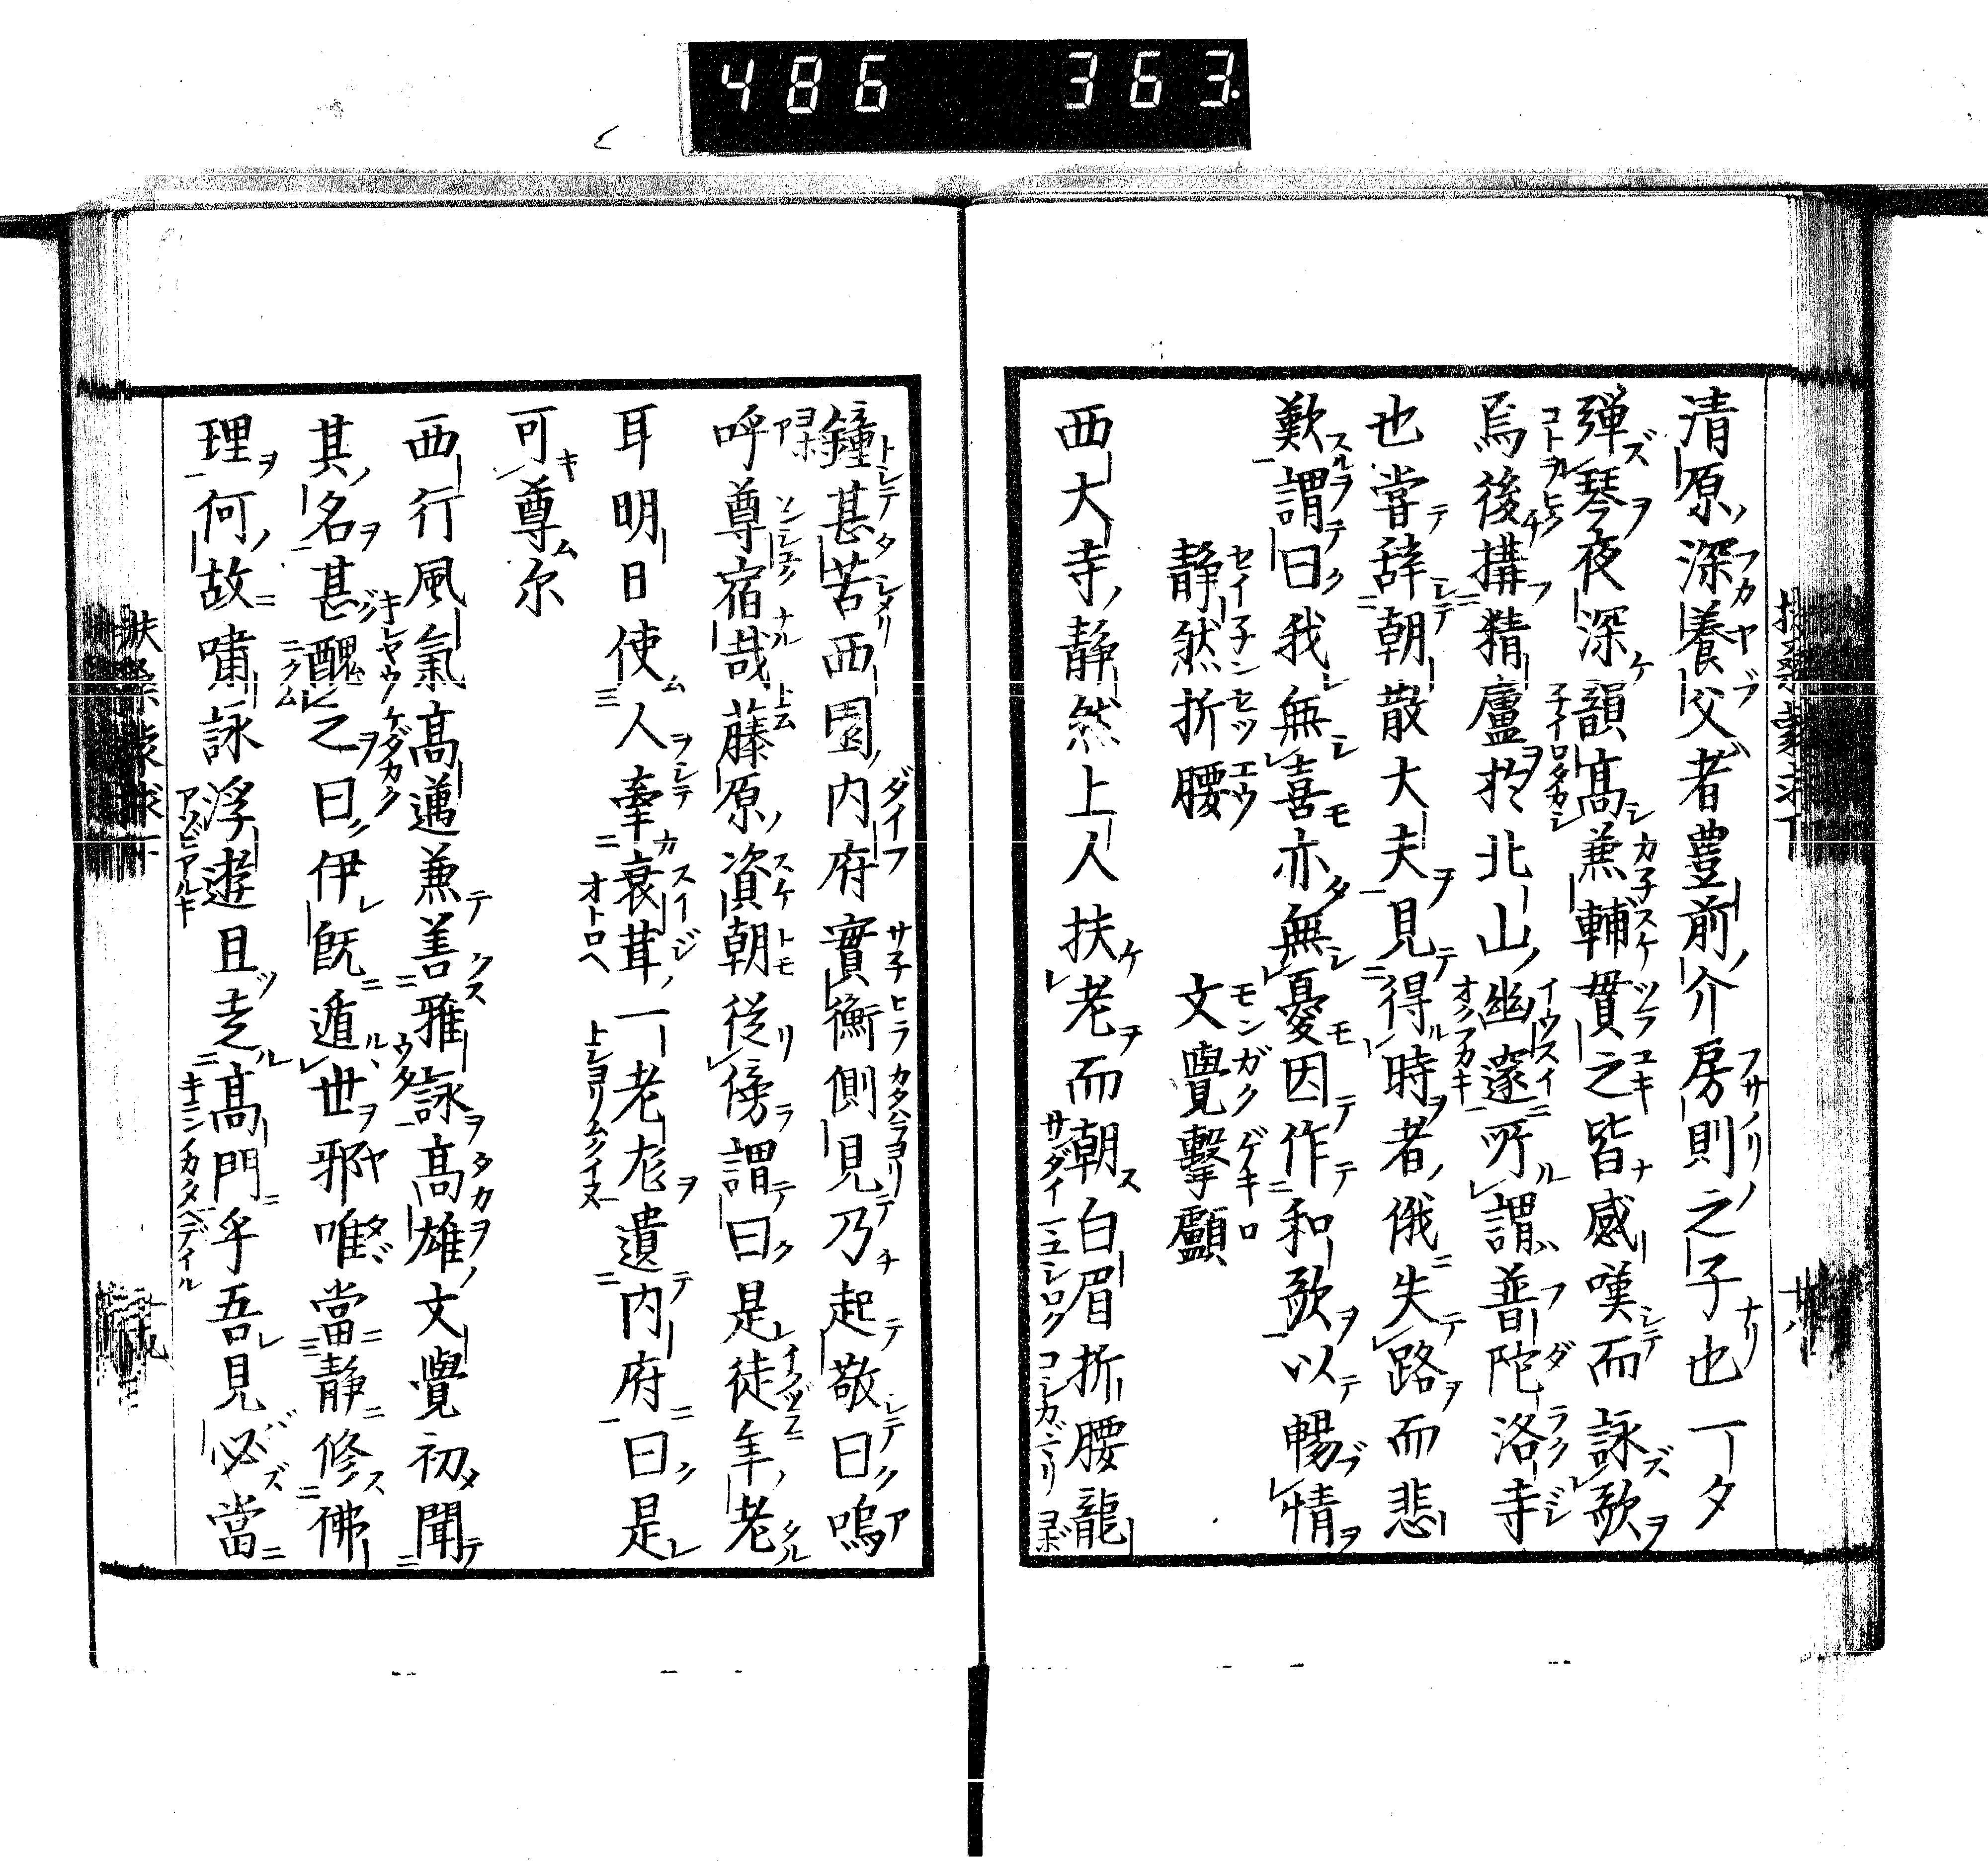 486 363.
清原深養父者豊前介房則之子也一夕
彈琴夜深韻髙兼輔貫之皆感嘆而詠歌
焉後搆精廬於北山幽邃所謂普陀洛寺
也嘗辞朝散大夫見得時者俄失路而悲
歎謂曰我無喜亦無憂因作和歌以暢情
静然折腰 文覺擊顱
西大寺静然上人扶老而朝白眉折腰龍
鐘甚苦西園内府實衡側見乃起敬曰嗚
呼尊宿哉藤原資朝從傍謂曰是徒年老
耳明日使人牽衰茸一老尨遺内府曰是
可尊尓
西行風氣髙邁兼善雅詠髙雄文覺初聞
其名甚醜之曰伊既遁世邪唯當静修佛
理何故嘯詠浮遊且走髙門乎吾見必當